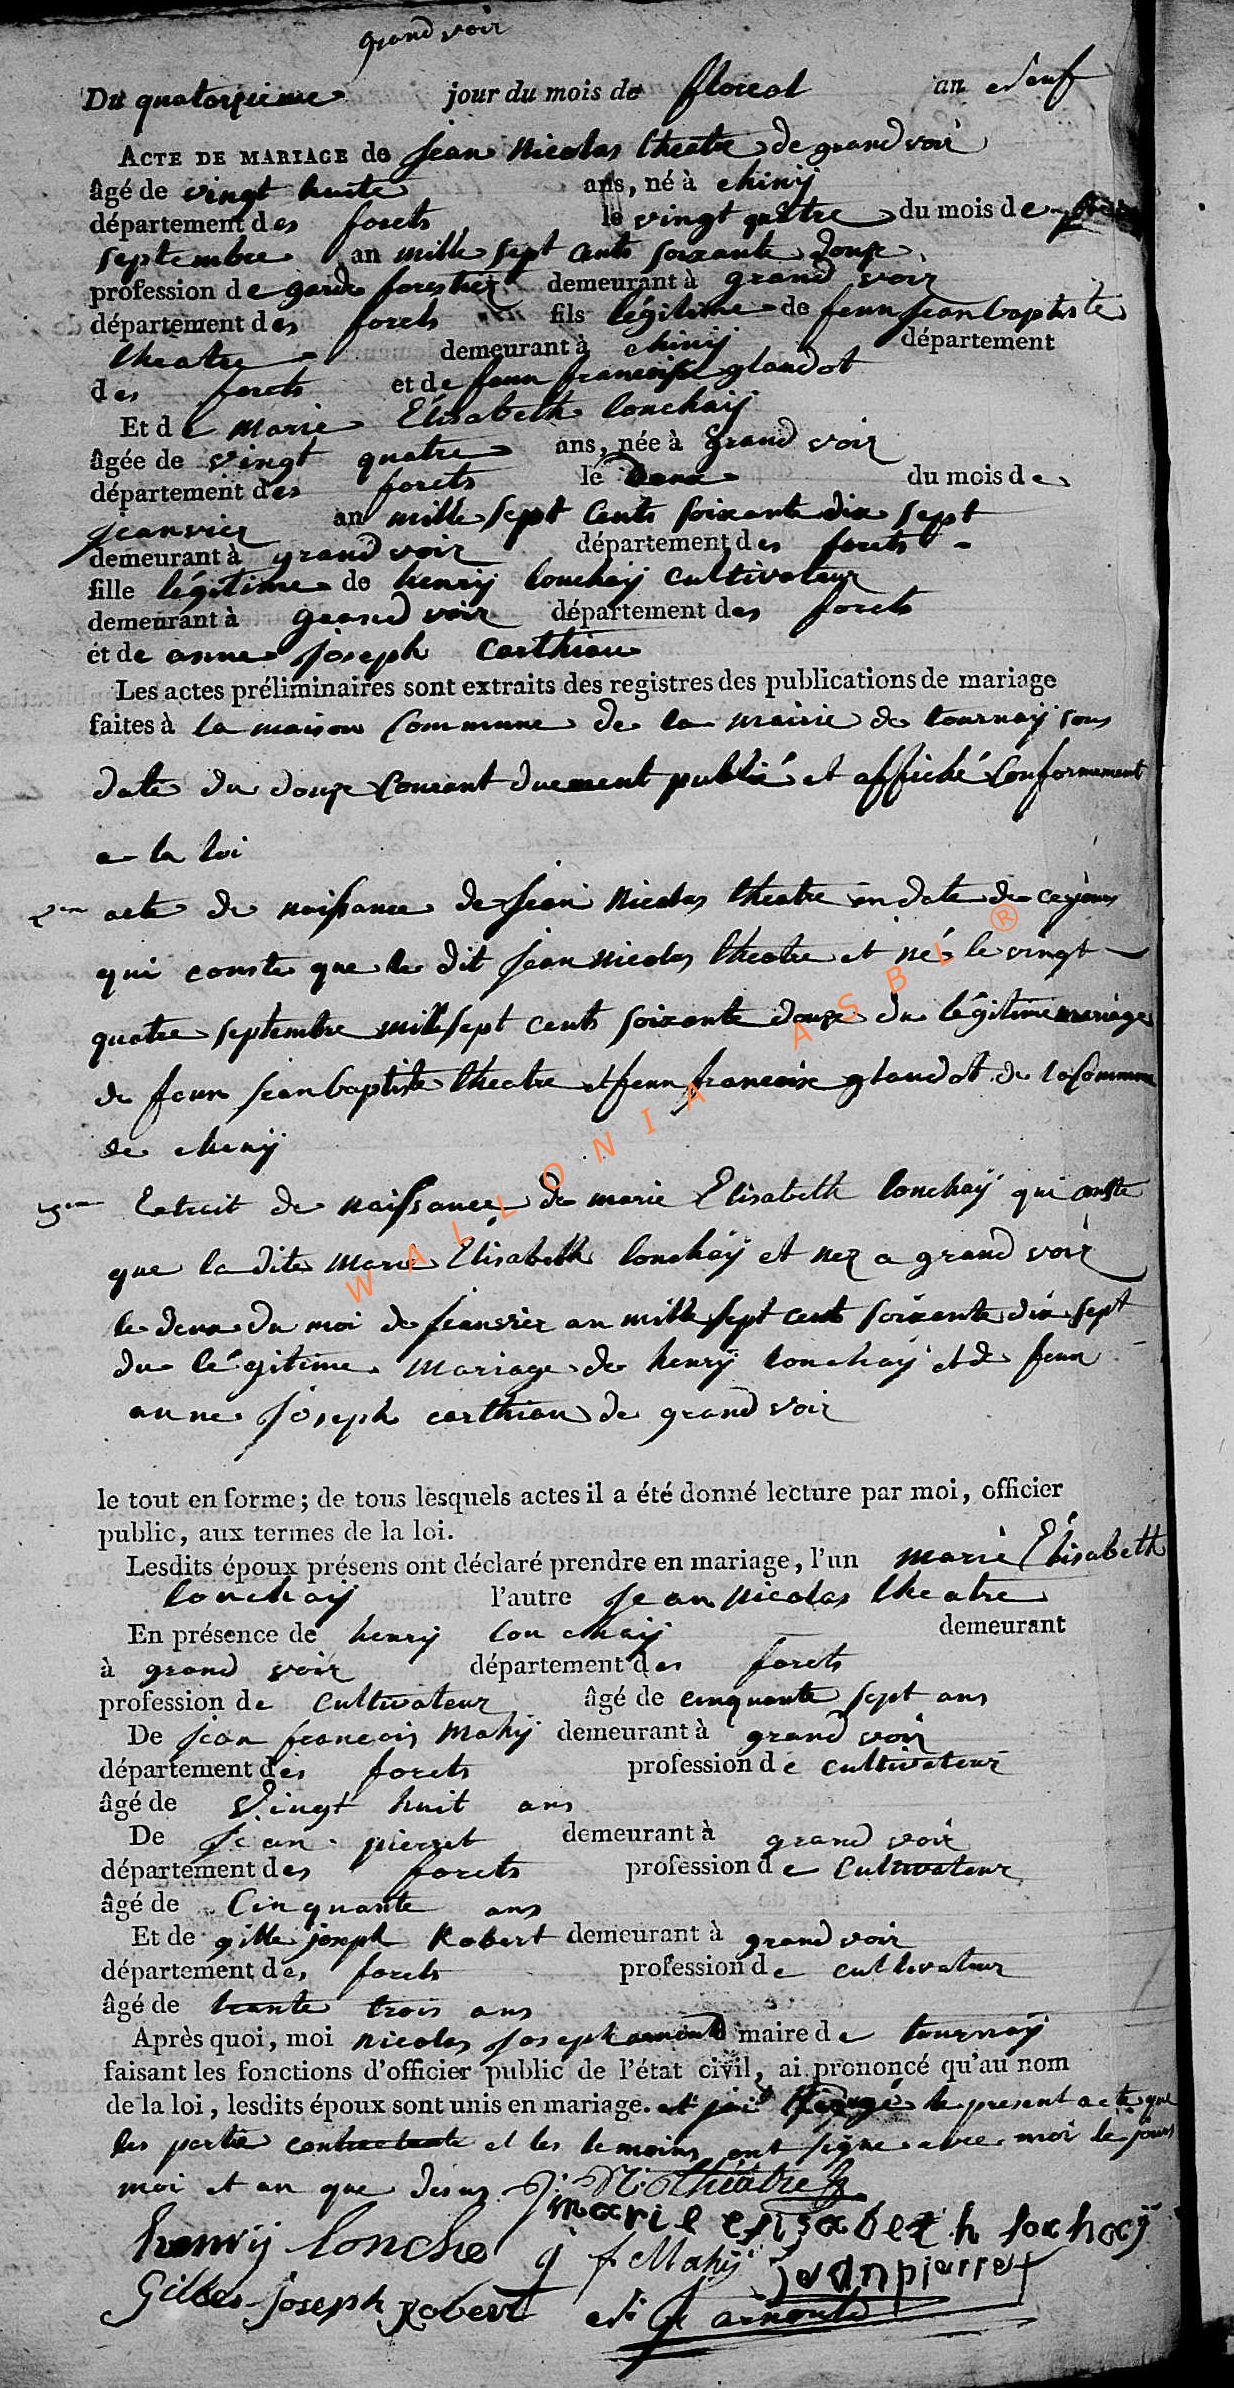 grand voir
Du quatorzieme jour du mois de floreal an neuf
ACTE DE MARIAGE de jean nicolas theatre de grand voir
âgé de vingt huite ans, né à chinÿ
département des forets le vingt quatre du mois de
septembre an mille sept cents soixante douze
profession de garde forestier demeurant à grand voir
département des forets fils légitime de feun jean baptiste
theatre demeurant à chinÿ département
des forets et de feun francoise glaudot
Et de marie Elisabeth lonchaÿ
âgée de vingt quatre ans, née à grand voir
département des forets le deux du mois de
jeanvier an mille sept cents soixante dix sept
demeurant à grand voir département des forets
fille légitime de henrÿ lonchaÿ cultivateur
demeurant à grand voir département des forets
et de anne joseph carthiau
Les actes préliminaires sont extraits des registres des publications de mariage
faites à la maison commune de la mairie de tournaÿ sous
date du douze courant duement publié et affiché conformement
a la loi
2me acte de naissance de jean nicolas theatre en date de ce jour
qui conste que le dit jean nicolas theatre et né le vingt
quatre septembre mille sept cents soixante douze du légitime mariage
de feun jean baptiste theatre et feun francoise glaudot de la commune
de chinÿ
3me Extrait de naissance de marie Elisabeth lonchaÿ qui conste
que la dite marie Elisabeth lonchaÿ et nez a grand voir
le deux du moi de jeanvier an mille sept cents soixante dix sept
du légitime mariage de henrÿ lonchaÿ et de feun
anne joseph carthiau de grand voir
le tout en forme; de tous lesquels actes il a été donné lecture par moi, officier
public, aux termes de la loi.
Lesdits époux présens ont déclaré prendre en mariage, l'un marie Elisabeth
lonchaÿ l'autre jean nicolas theatre
En présence de henrÿ lonchaÿ demeurant
à grand voir département des forets
profession de cultivateur âgé de cinquante sept ans
De jean francois Mahÿ demeurant à grand voir
département des forets profession de cultivateur
âgé de vingt huit ans
De jean pierret demeurant à grand voir
département des forets profession de cultivateur
âgé de Cinquante ans
Et de gille joseph Robert demeurant à grand voir
département des forets profession de cultivateur
âgé de trante trois ans
Après quoi, moi nicolas joseph arnould maire de tournaÿ
faisant les fonctions d'officier public de l'état civil, ai prononcé qu'au nom
de la loi, lesdits époux sont unis en mariage. et jai redigé le present acte que
les partie contractante et les temoins ont signe avec moi le jour
moi et an que desus J: N: Théatre
marie elisabeth lochaÿ
henrÿ lonche j f Mahÿ jean pierret
Gilles joseph Robert arnould
WALLONIA ASBL ®